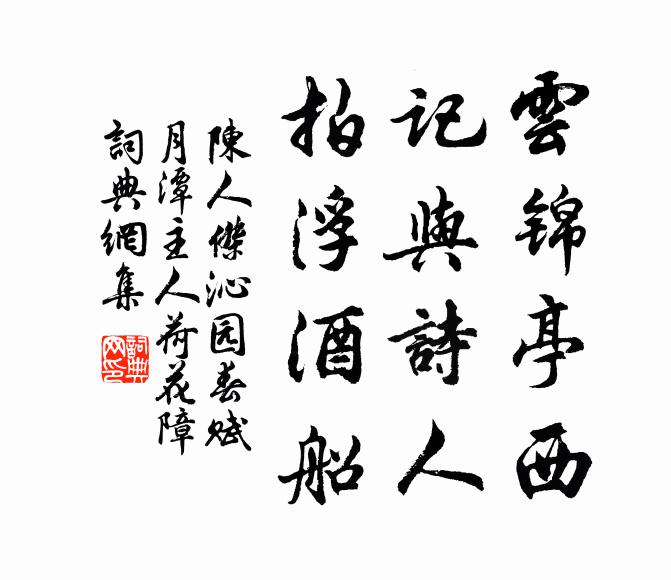 雲锦亭西
记與詩人
拍浮酒船
陳人傑沁园春賦
月潭主人荷花障
詞典網集
詞典网印